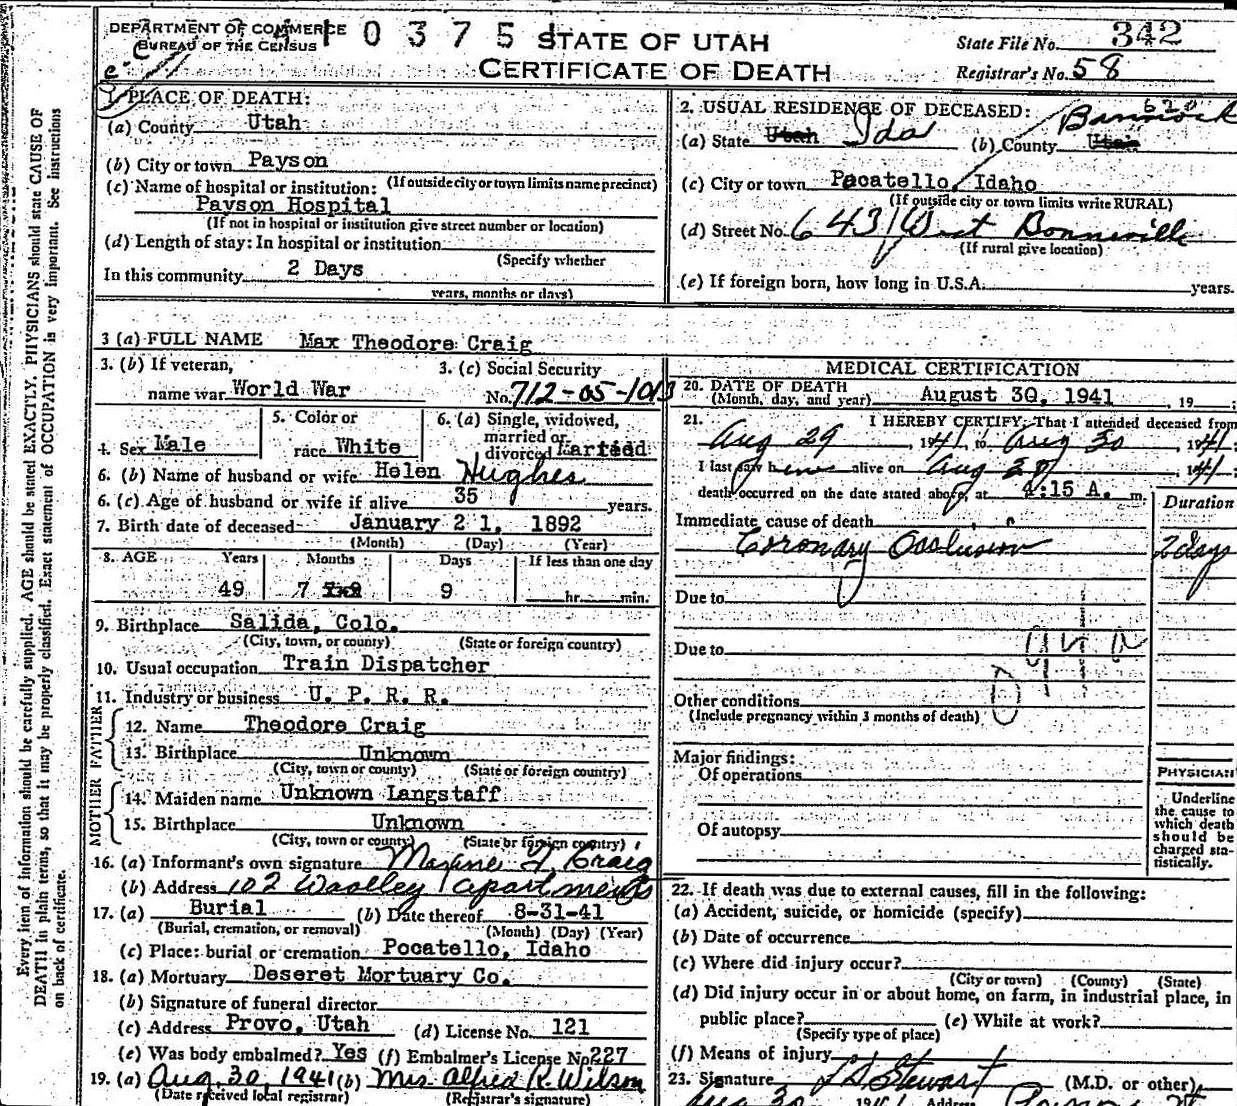 DEPARTMENT OF COMMERCE
BUREAU OF THE CENSUS
1 0 3 7 5 1
STATE OF UTAH
CERTIFICATE OF DEATH
State File No. 342
Registrar's No. 58
1. PLACE OF DEATH:
(a) County Utah
(b) City or town Payson
(If outside city or town limits name precinct)
(c) Name of hospital or institution:
Payson Hospital
(If not in hospital or institution give street number or location)
(d) Length of stay: In hospital or institution
(Specify whether
In this community 2 Days
years, months or days)
2. USUAL RESIDENCE OF DECEASED:
620
(a) State Utah Ida (b) County Utah Bannock
(c) City or town Pocatello, Idaho
(If outside city or town limits write RURAL)
(d) Street No. 643 West Bonneville
(If rural give location)
(e) If foreign born, how long in U.S.A. years.
3 (a) FULL NAME Max Theodore Craig
3. (b) If veteran,
name war World War
3. (c) Social Security
No. 712-05-1013
4. Sex Male
5. Color or
race White
6. (a) Single, widowed,
married or
divorced Married
6. (b) Name of husband or wife Helen Hughes
6. (c) Age of husband or wife if alive 35 years.
7. Birth date of deceased January 21, 1892
(Month) (Day) (Year)
8. AGE Years Months Days If less than one day
49 7 9 hr. min.
9. Birthplace Salida, Colo.
(City, town, or county) (State or foreign country)
10. Usual occupation Train Dispatcher
11. Industry or business U. P. R. R.
FATHER
12. Name Theodore Craig
13. Birthplace Unknown
(City, town or county) (State or foreign country)
MOTHER
14. Maiden name Unknown Langstaff
15. Birthplace Unknown
(City, town or county) (State or foreign country)
16. (a) Informant's own signature Maxine H. Craig
(b) Address 102 Woolley Apartments
17. (a) Burial (b) Date thereof 8-31-41
(Burial, cremation, or removal) (Month) (Day) (Year)
(c) Place: burial or cremation Pocatello, Idaho
18. (a) Mortuary Deseret Mortuary Co.
(b) Signature of funeral director
(c) Address Provo, Utah (d) License No. 121
(e) Was body embalmed? Yes (f) Embalmer's License No 227
19. (a) Aug. 30, 1941 (b) Mrs. Alfred R. Wilson
(Date received local registrar) (Registrar's signature)
MEDICAL CERTIFICATION
20. DATE OF DEATH
(Month, day, and year) August 30, 1941, 19
21. I HEREBY CERTIFY, That I attended deceased from
Aug 29, 1941, to Aug 30, 1941;
I last saw him alive on Aug 29, 1941;
death occurred on the date stated above, at 4:15 A. m.
Duration
Immediate cause of death
Coronary Occlusion 2 days
Due to
Due to
94 a
Other conditions
(Include pregnancy within 3 months of death)
Major findings:
Of operations
Of autopsy
PHYSICIAN
Underline
the cause to
which death
should be
charged sta-
tistically.
22. If death was due to external causes, fill in the following:
(a) Accident, suicide, or homicide (specify)
(b) Date of occurrence
(c) Where did injury occur?
(City or town) (County) (State)
(d) Did injury occur in or about home, on farm, in industrial place, in
public place? (e) While at work?
(Specify type of place)
(f) Means of injury
23. Signature L D Stewart (M.D. or other)
Aug 30 1941 Address
Every item of information should be carefully supplied. AGE should be stated EXACTLY. PHYSICIANS should state CAUSE OF
DEATH in plain terms, so that it may be properly classified. Exact statement of OCCUPATION is very important. See instructions
on back of certificate.